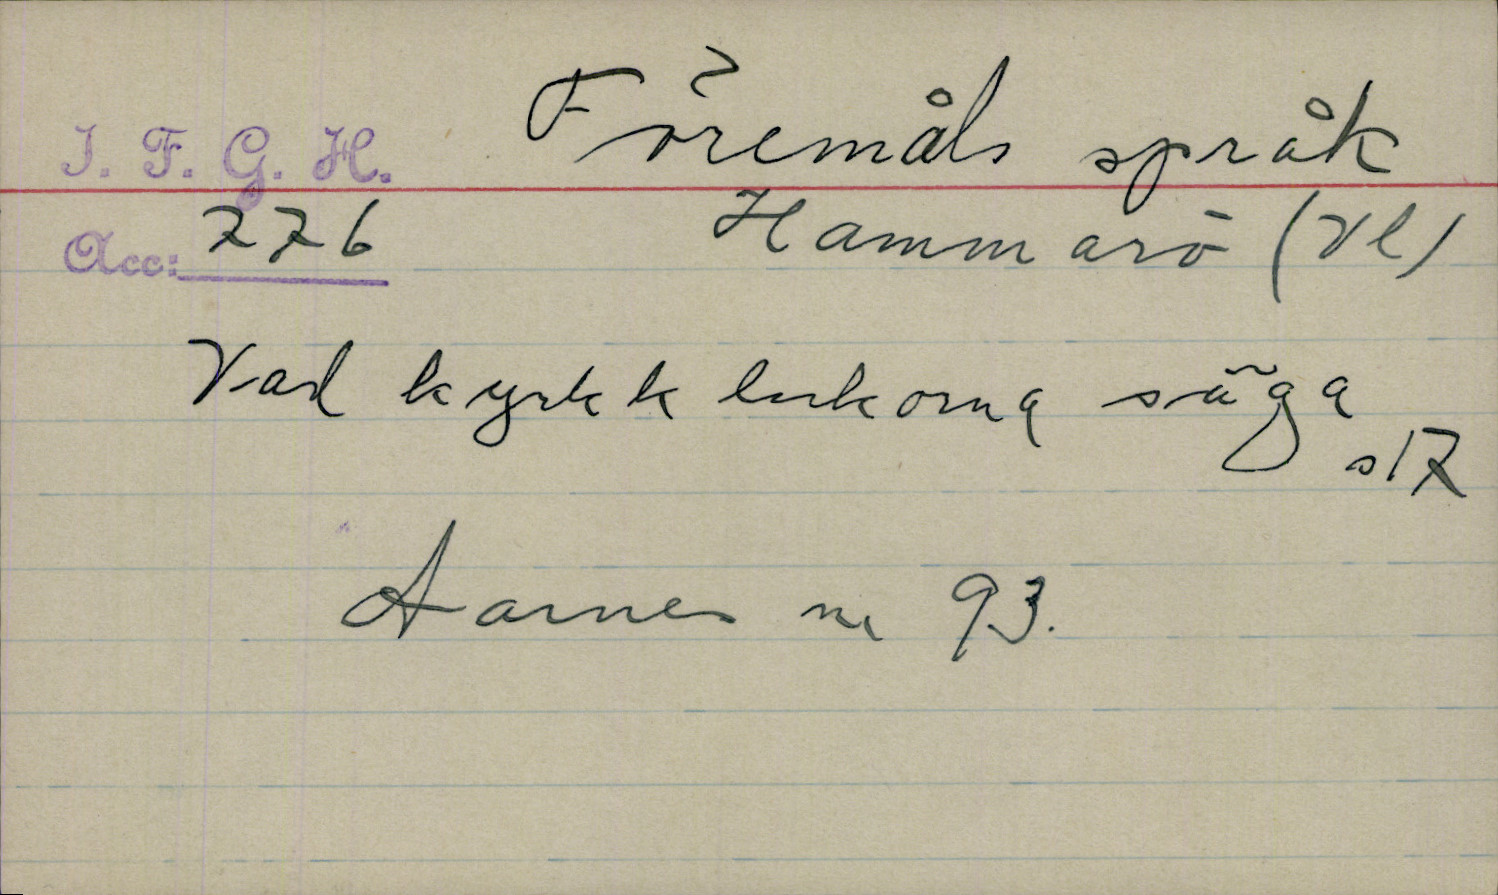 I. F. G. H.
Föremåls språk
Acc: 776
Hammarö (Vl)
Vad kyrkklockorna säga
s17
Aarnes nr 93.